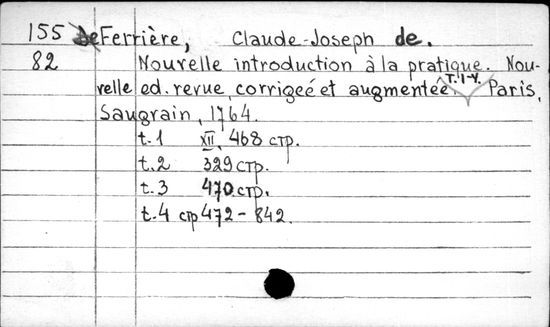 155 de Ferrière, Claude-Joseph de.
82 Nouvelle introduction à la pratique. Nou-
velle ed. revue, corrigeé et augmenteé. T. 1-4. Paris,
Saugrain, 1764.
t. 1 XII, 468 стр.
t. 2 329 стр.
t. 3 470 стр.
t. 4 стр 472 - 842.